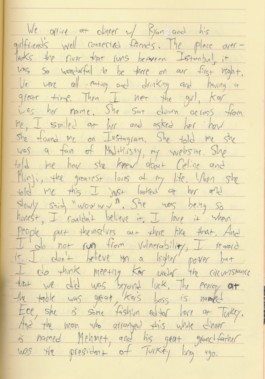 We arrive at dinner w/ Ryan and his
girlfriend's well connected friends. The place over-
looks the river that runs between Istanbul, it
was so wonderful to be there on our first night.
We were all eating and drinking and having a
great time. Then I met the girl, Kar
was her name. She sat down across from
me, I smiled at her and asked her how
she found me on Instagram. She told me she
was a fan of my website. She
told me how she knew about Celine and
the greatest loves of my life. When she
told me this I just looked at her and
slowly said, "woooww". She was being so
honest, I couldn't believe it. I love it when
people put themselves out there like that. And
I do not run from vulnerability, I reward
it. I don't believe in a higher power but
I do think meeting Kar under the circumstance
that we did was beyond luck. The energy at
the table was great. Kar's boss is named
Ece, she is some fashion editor here in Turkey.
And the man who arranged this whole dinner
is named Mehmet, and his great grandfather
was the president of Turkey long ago.